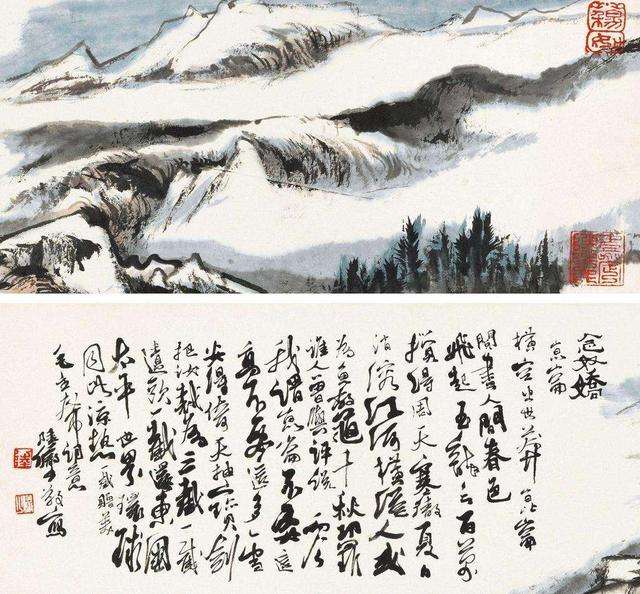 念奴嬌
崑崙
橫空出世莽崑崙
閱盡人間春色
飛起玉龍三百萬
攪得周天寒徹夏日
消溶江河橫溢人或
為魚鱉千秋功罪
誰人曾與評說而今
我謂崑崙不要這
高不要這多雪
安得倚天抽寶劍
把汝裁為三截一截
遺歐一截還東國
太平世界環球
同此涼熱 一截贈美
毛主席詞意
陸儼少敬寫